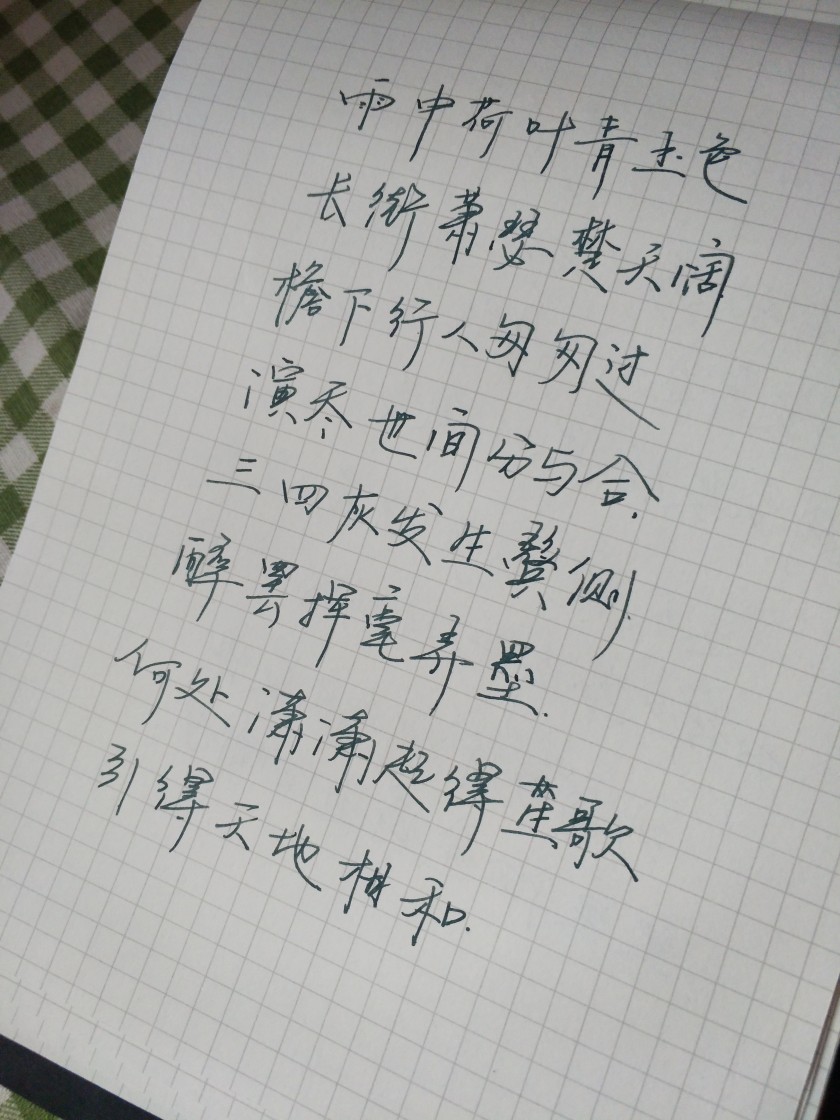 雨中荷叶青玉色
长街萧瑟楚天阔
檐下行人匆匆过
演尽世间分与合.
三四灰发生鬓侧
醉罢挥毫弄墨.
何处潇潇起得楚歌
引得天地相和.